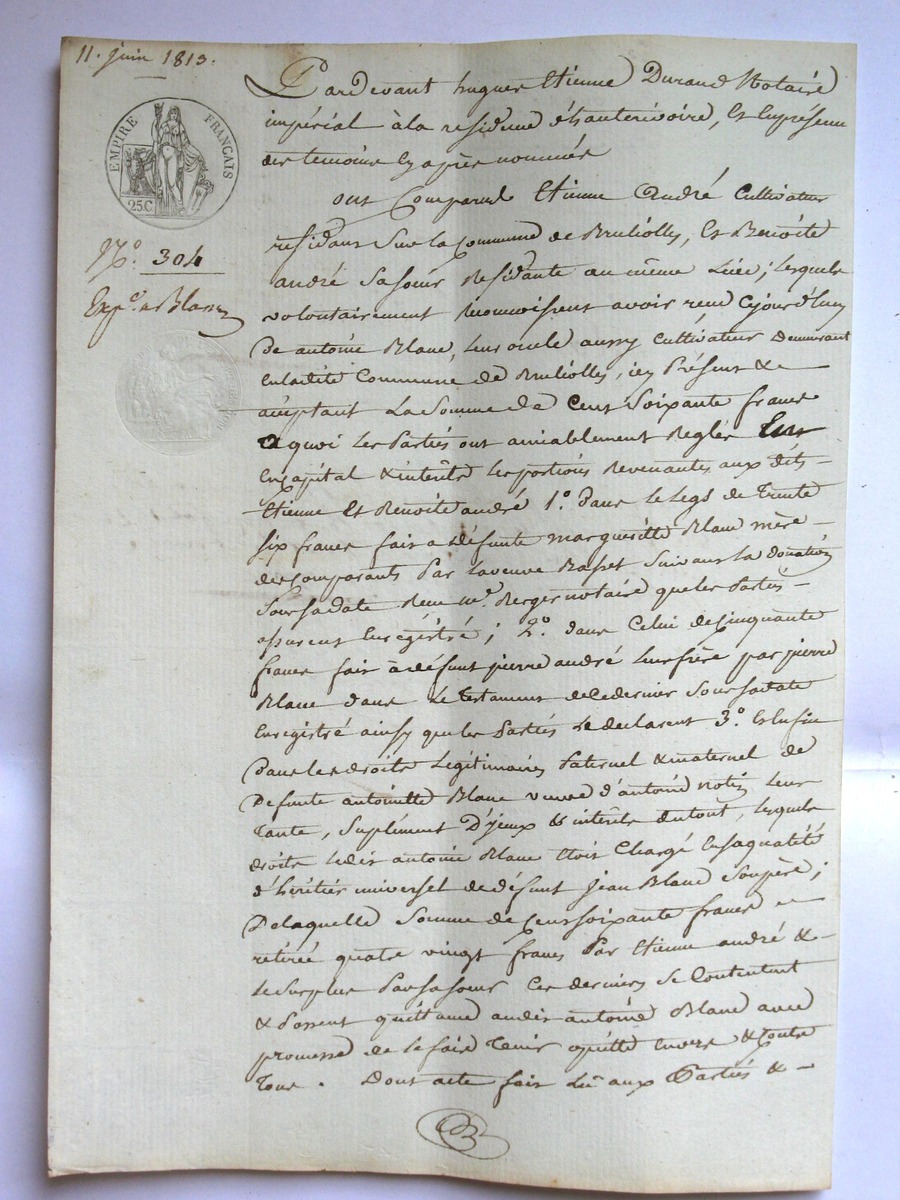 11. juin 1813.
EMPIRE FRANÇAIS
25.C
N.º 304
Exp.on à Blanc
Pardevant hugues Etienne Durand Notaire
impérial à la residence d'hauterivoire, Et En présence
des temoins Cy après nommés
ont Comparu Etienne André Cultivateur
residant Sur la Commune de Brulliolles, Et Benoîte
andré Sa Soeur Residante au même Lieu; lesquels
volontairement reconnoissent avoir reçu Cejourd'huy
De antoine Blanc, Leur oncle aussy Cultivateur Demeurant
En ladite Commune de Brulliolles, icy Présent &
acceptant La Somme de Cent Soixante francs
a quoi Les Parties ont amiablement Reglés
En Capital & intérêts Les portions Revenantes aux dits
Etienne Et Benoite andré 1.º Dans Le Legs de Trente
six francs fait a defunte marguerite Blanc mère
des Comparants Par La veuve Basset Suivant La donation
Sous Sa date Reçue M.e Berger notaire que les Parties
assurent Enregistré; 2.º dans Celui de Cinquante
francs fait à defunt pierre andré Leur frère par pierre
Blanc dans Le Testament de Ce dernier Sous Sa date
Enregistré ainsy que les Parties Le declarent 3.º Et Enfin
Dans les droits Légitimaires Paternel & maternel de
Defunte antoinette Blanc veuve d'antoine Leur
Tante, Suplément D'yceux & intérêts du tout, Lesquels
droits Ledit antoine Blanc Etoit Chargé En Sa qualité
d'héritier universel de defunt Jean Blanc Son père;
De laquelle Somme de Cent Soixante francs
retirée quatre vingt francs Par Etienne andré &
Le Surplus Par Sa Soeur Ces derniers Se Contentent
& Passent quittance audit antoine Blanc avec
promesse de Le faire Tenir quitte Envers & Contre
Tous. Dont acte fait Lu aux Parties &